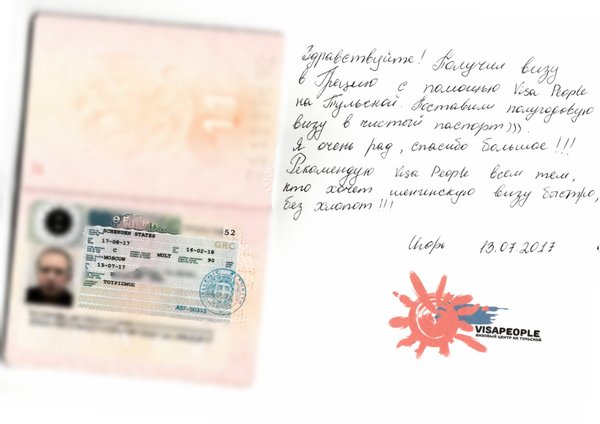 52
SCHENGEN STATES
GRC
17-08-17
16-02-18
C
MULT
90
MOSCOW
13-07-17
ТОУРИСМОС
A07-50313
Здравствуйте! Получил визу
в Грецию с помощью Visa People
на Тульской. Поставили полугодовую
визу в чистый паспорт))).
Я очень рад, спасибо большое!!!
Рекомендую Visa People всем тем,
кто хочет шенгенскую визу быстро,
без хлопот!!!
Игорь 13.07.2017
VISAPEOPLE
ВИЗОВЫЙ ЦЕНТР НА ТУЛЬСКОЙ